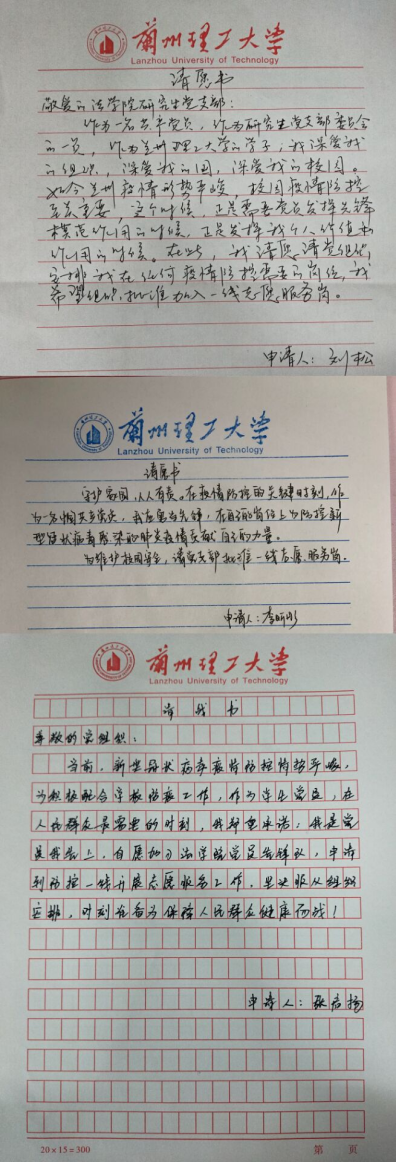 蘭州理工大学
Lanzhou University of Technology
请愿书
敬爱的法学院研究生党支部：
作为一名共产党员，作为研究生党支部委员会
的一员，作为兰州理工大学的学子，我深爱我
的组织，深爱我的国，深爱我的校园。
如今兰州疫情形势严峻，校园疫情防控
至关重要，这个时候，正是需要党员发挥先锋
模范作用的时候，正是发挥我个人价值和
作用的时候。在此，我请愿请党组织
安排我在任何疫情防控需要的岗位，我
希望组织批准加入一线志愿服务岗。
申请人：刘松
蘭州理工大学
Lanzhou University of Technology
请愿书
守护家园，人人有责。在疫情防控的关键时刻，作
为一名中共党员，我应勇当先锋，在自己的岗位上为防控新
型冠状病毒感染的肺炎疫情贡献自己的力量。
为维护校园安全，请党支部批准一线志愿服务岗。
申请人：李昕彤
蘭州理工大学
Lanzhou University of Technology
请战书
尊敬的党组织：
当前，新型冠状病毒疫情防控形势严峻，
为积极配合学校防疫工作，作为学生党员，在
人民群众最需要的时刻，我郑重承诺：我是党
员我先上，自愿加入法学院党员先锋队，申请
到防控一线开展志愿服务工作，坚决服从组织
安排，时刻准备为保障人民群众健康而战！
申请人：张启扬
20×15=300
第 页